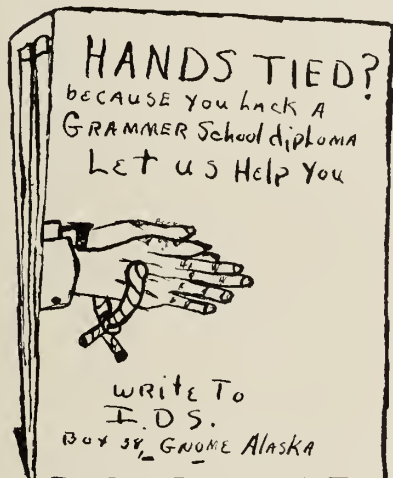 HANDS TIED?
because you lack a
GRAMMER School diploma
Let us Help You
write To
I.D.S.
Box 38, GNOME ALASKA